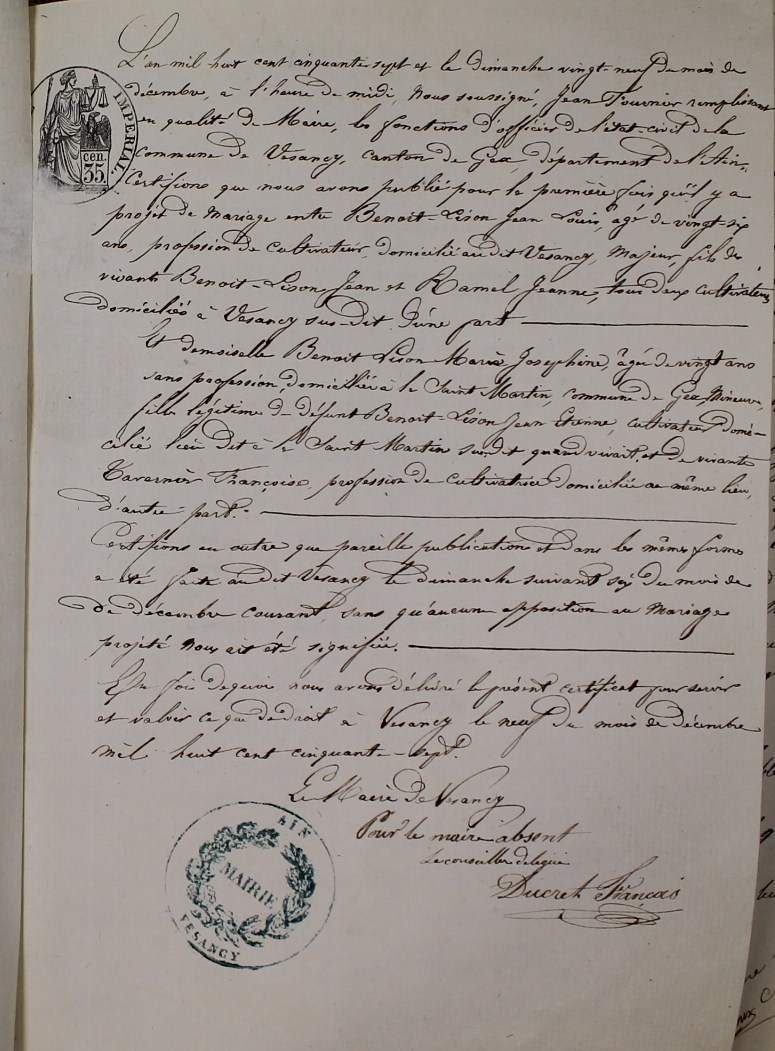 L'an mil huit cent cinquante sept et le dimanche vingt neuf du mois de
décembre, à l'heure de midi, Nous soussigné, Jean Fournier remplissant
en qualité de Maire, les fonctions d'officier de l'état-civil de la
commune de Vesancy, canton de Gex, département de l'Ain.
Certifions que nous avons publié pour la première fois qu'il y a
projet de mariage entre Benoit-Lison Jean Louis, âgé de vingt-six
ans, profession de cultivateur, domicilié au dit Vesancy, majeur, fils de
vivants Benoit-Lison Jean et Ramel Jeanne, tous deux cultivateurs
domiciliés à Vesancy sus-dit d'une part
Et demoiselle Benoit Lison Marie Josephine, âgée de vingt ans
sans profession, domiciliée à le Saint Martin, commune de Gex, Mineure,
fille légitime de défunt Benoit-Lison Jean Etienne, cultivateur domi-
cilié lieu dit à le Saint Martin sus-dit quand vivait, et de vivante
Tavernier Françoise, profession de cultivatrice domiciliée au même lieu,
d'autre part.
Certifions en outre que pareille publication et dans les mêmes formes
a été faite au dit Vesancy le dimanche suivant six du mois de
de décembre courant, sans qu'aucune opposition au mariage
projeté nous ait été signifiée.
En foi de quoi nous avons délivré le présent certificat pour servir
et valoir ce que de droit à Vesancy le neuf du mois de décembre
mil huit cent cinquante-sept.
Le Maire de Vesancy
Pour le maire absent
Le conseiller délégué
Ducret François
IMPERIAL
35 cen.
AIN
MAIRIE
VESANCY